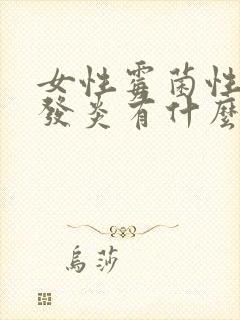 女性霉菌性
發炎有什麼
烏莎